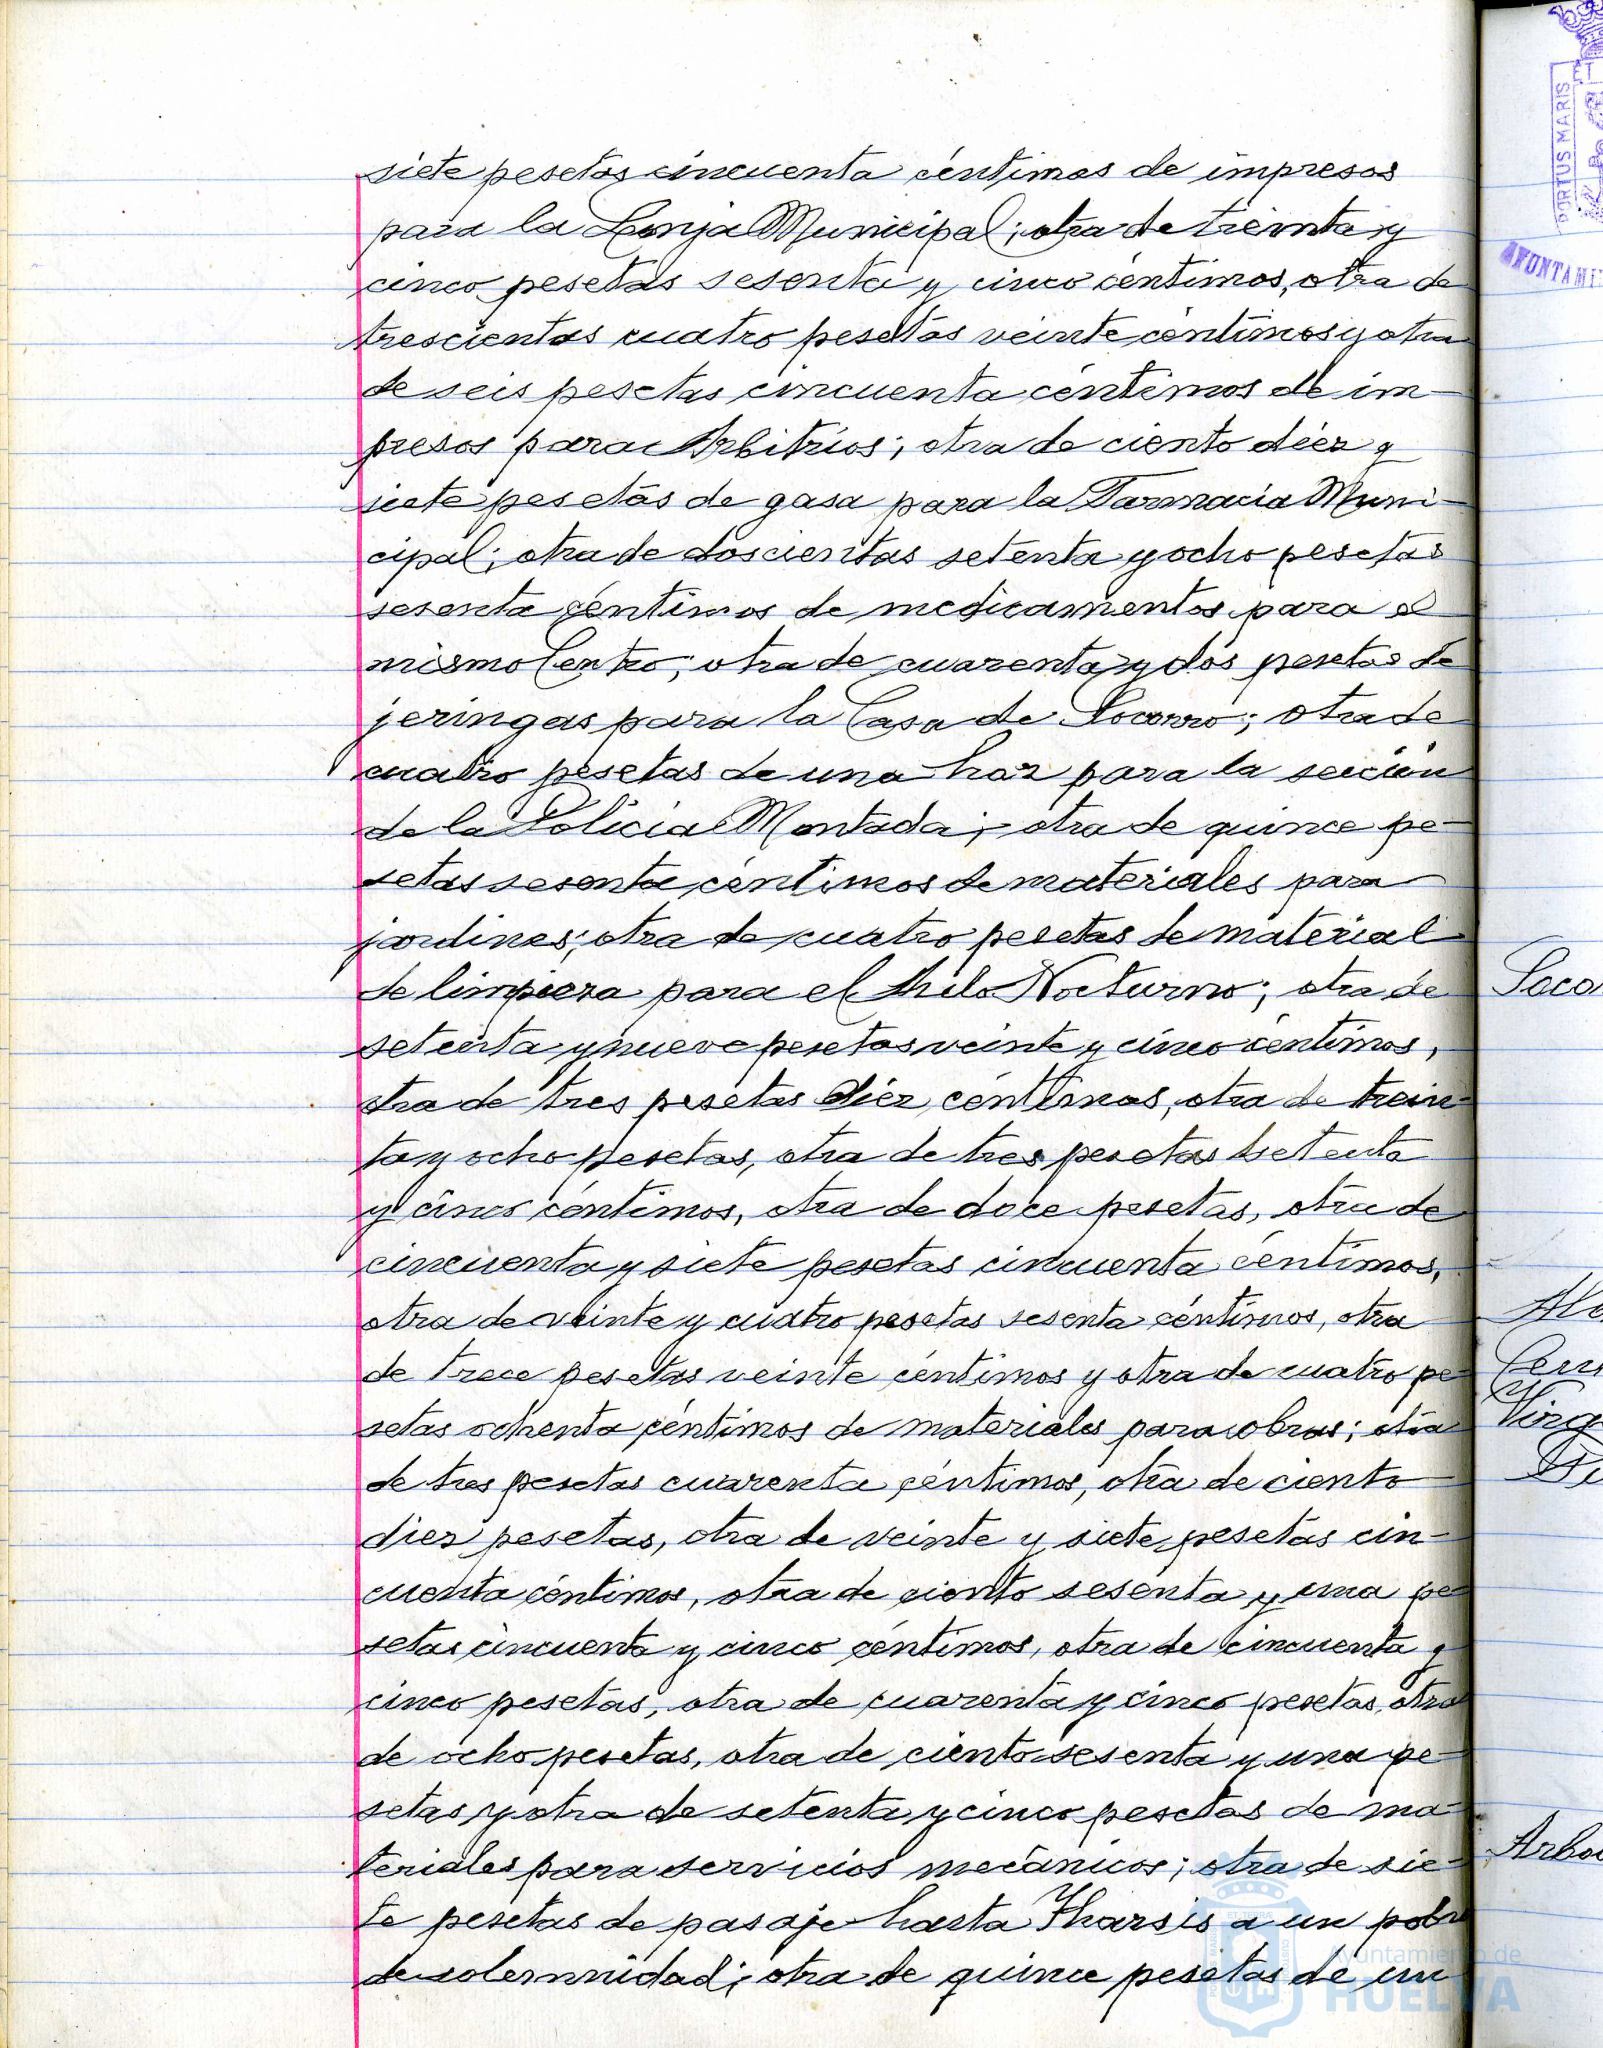 siete pesetas cincuenta céntimos de impresos
para la Lonja Municipal; otra de treinta y
cinco pesetas sesenta y cinco céntimos, otra de
trescientas cuatro pesetas veinte céntimos y otra
de seis pesetas cincuenta céntimos de im-
presos para Arbitrios; otra de ciento diez y
siete pesetas de gasa para la Farmacia Muni-
cipal; otra de doscientas setenta y ocho pesetas
sesenta céntimos de medicamentos para el
mismo Centro; otra de cuarenta y dos pesetas de
jeringas para la Casa de Socorro; otra de
cuatro pesetas de una hoz para la sección
de la Policía Montada; otra de quince pe-
setas sesenta céntimos de materiales para
jardines; otra de cuatro pesetas de material
de limpieza para el Asilo Nocturno; otra de
setenta y nueve pesetas veinte y cinco céntimos,
otra de tres pesetas diez céntimos, otra de trein-
ta y ocho pesetas, otra de tres pesetas setenta
y cinco céntimos, otra de doce pesetas, otra de
cincuenta y siete pesetas cincuenta céntimos,
otra de veinte y cuatro pesetas sesenta céntimos, otra
de trece pesetas veinte céntimos y otra de cuatro pe-
setas ochenta céntimos de materiales para obras; otra
de tres pesetas cuarenta céntimos, otra de ciento
diez pesetas, otra de veinte y siete pesetas cin-
cuenta céntimos, otra de ciento sesenta y una pe-
setas cincuenta y cinco céntimos, otra de cincuenta y
cinco pesetas, otra de cuarenta y cinco pesetas, otra
de ocho pesetas, otra de ciento sesenta y una pe-
setas y otra de setenta y cinco pesetas de ma-
teriales para servicios mecánicos; otra de sie-
te pesetas de pasaje hasta Tharsis a un pobre
de solemnidad; otra de quince pesetas de un
PORTUS MARIS
ET
AYUNTAMI
Soco
Virg
Arbo
Ayuntamiento de
HUELVA